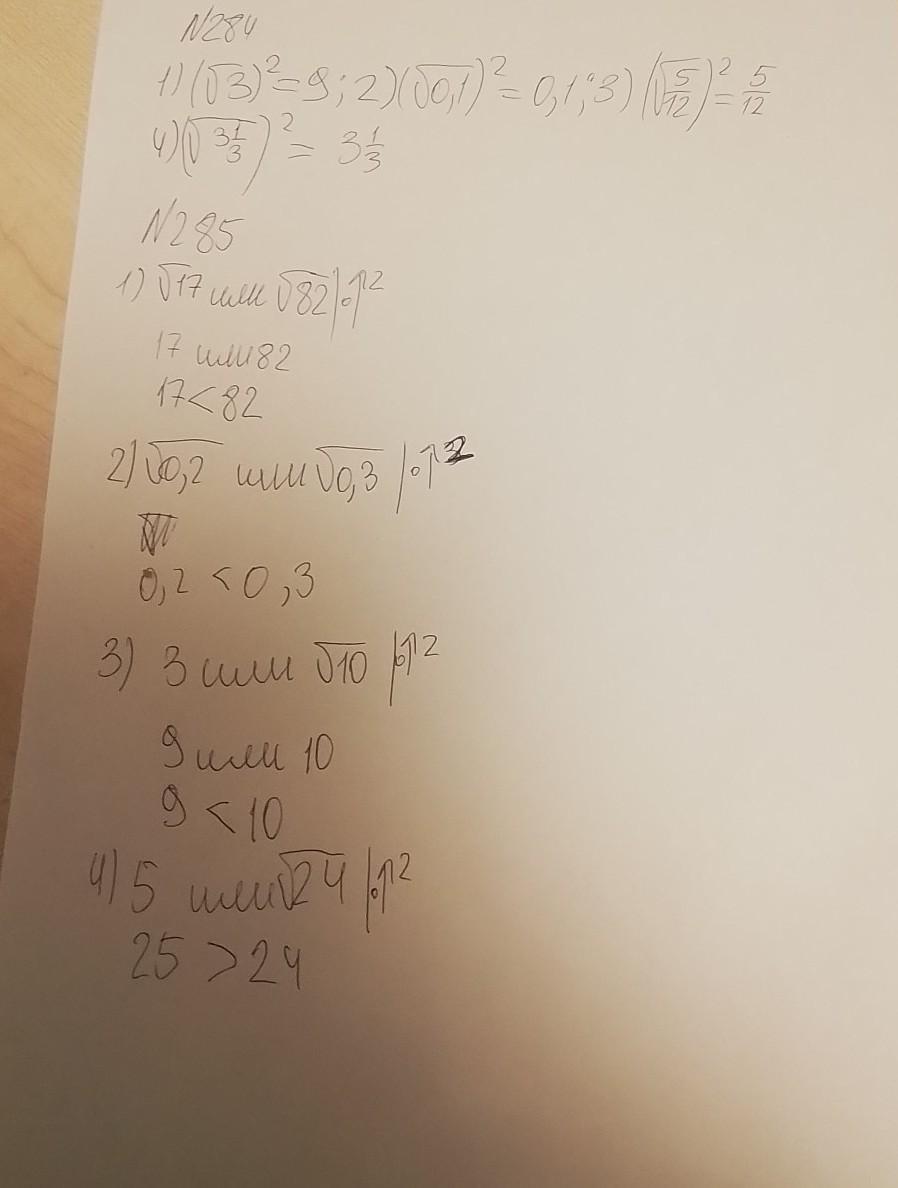 N284
1) (√3)² = 9; 2) (√0,1)² = 0,1; 3) (√5/12)² = 5/12
4) (√3 1/3)² = 3 1/3
N285
1) √17 или √82 |·↑²
17 или 82
17 < 82
2) √0,2 или √0,3 |·↑²
0,2 < 0,3
3) 3 или √10 |·↑²
9 или 10
9 < 10
4) 5 или √24 |·↑²
25 > 24